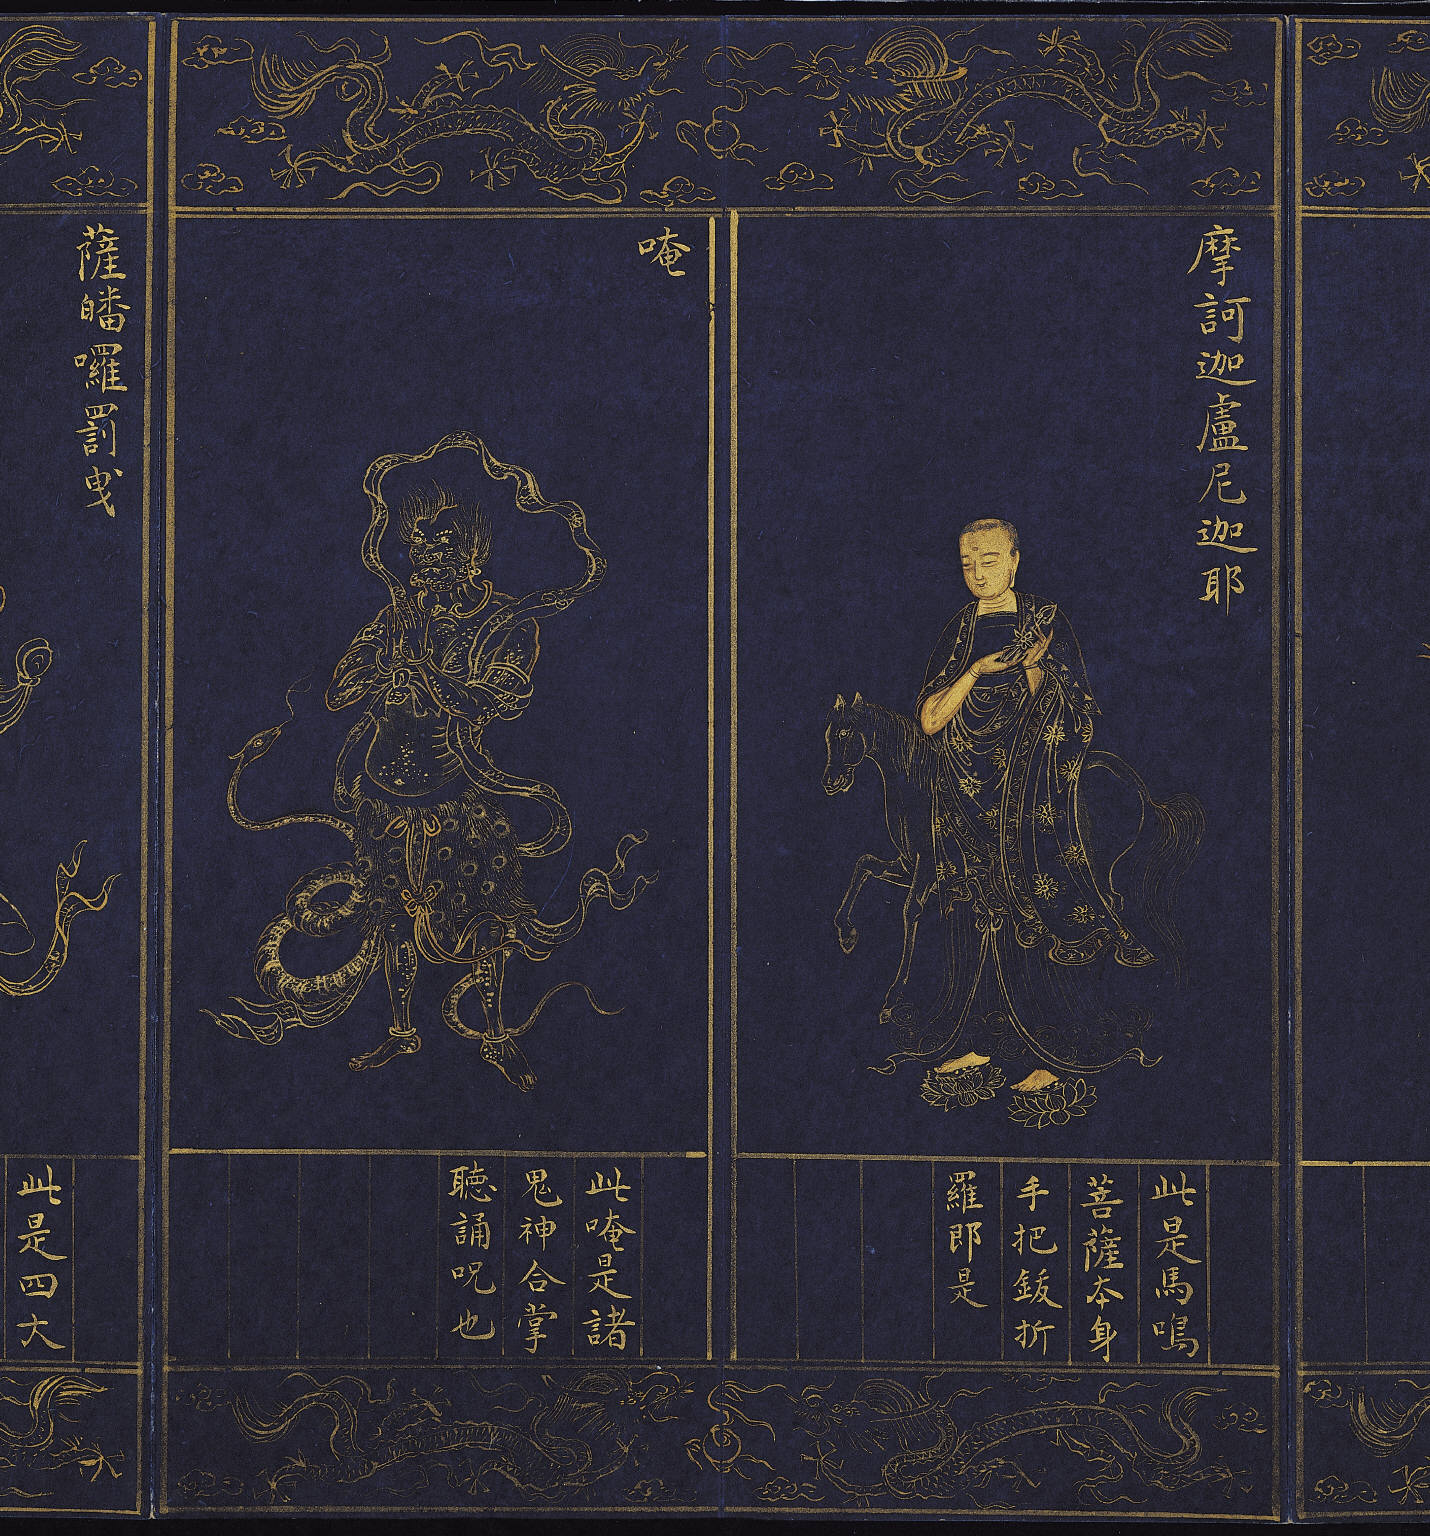 摩訶迦盧尼迦耶
此是馬鳴
菩薩本身
手把鈸折
羅即是
唵
此唵是諸
鬼神合掌
聽誦呪也
薩皤囉罰曳
此是四大